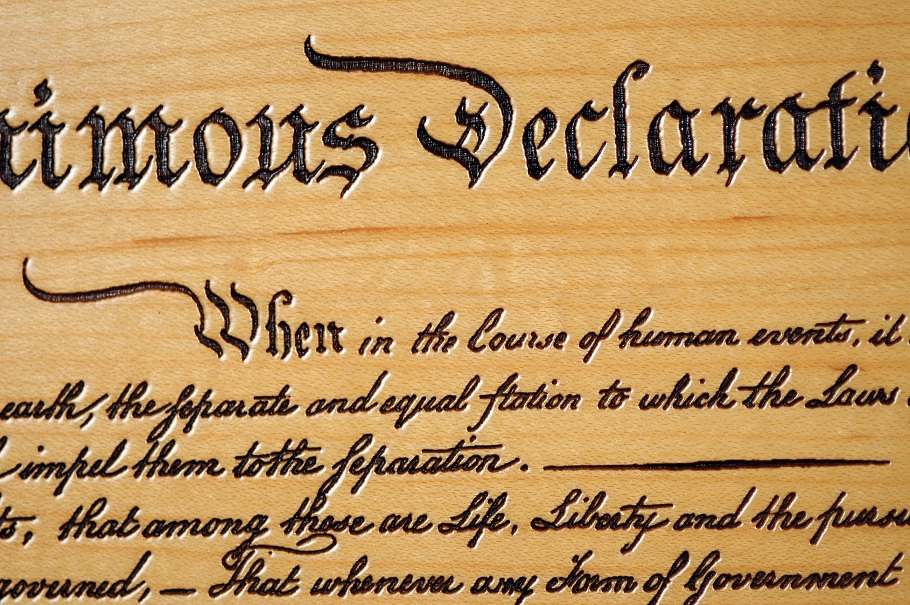 nimous Declarati
When in the Course of human events, it
earth, the ſeparate and equal ſtation to which the Laws
impel them to the ſeparation.
ts, that among these are Life, Liberty and the pursu
governed, — That whenever any Form of Government